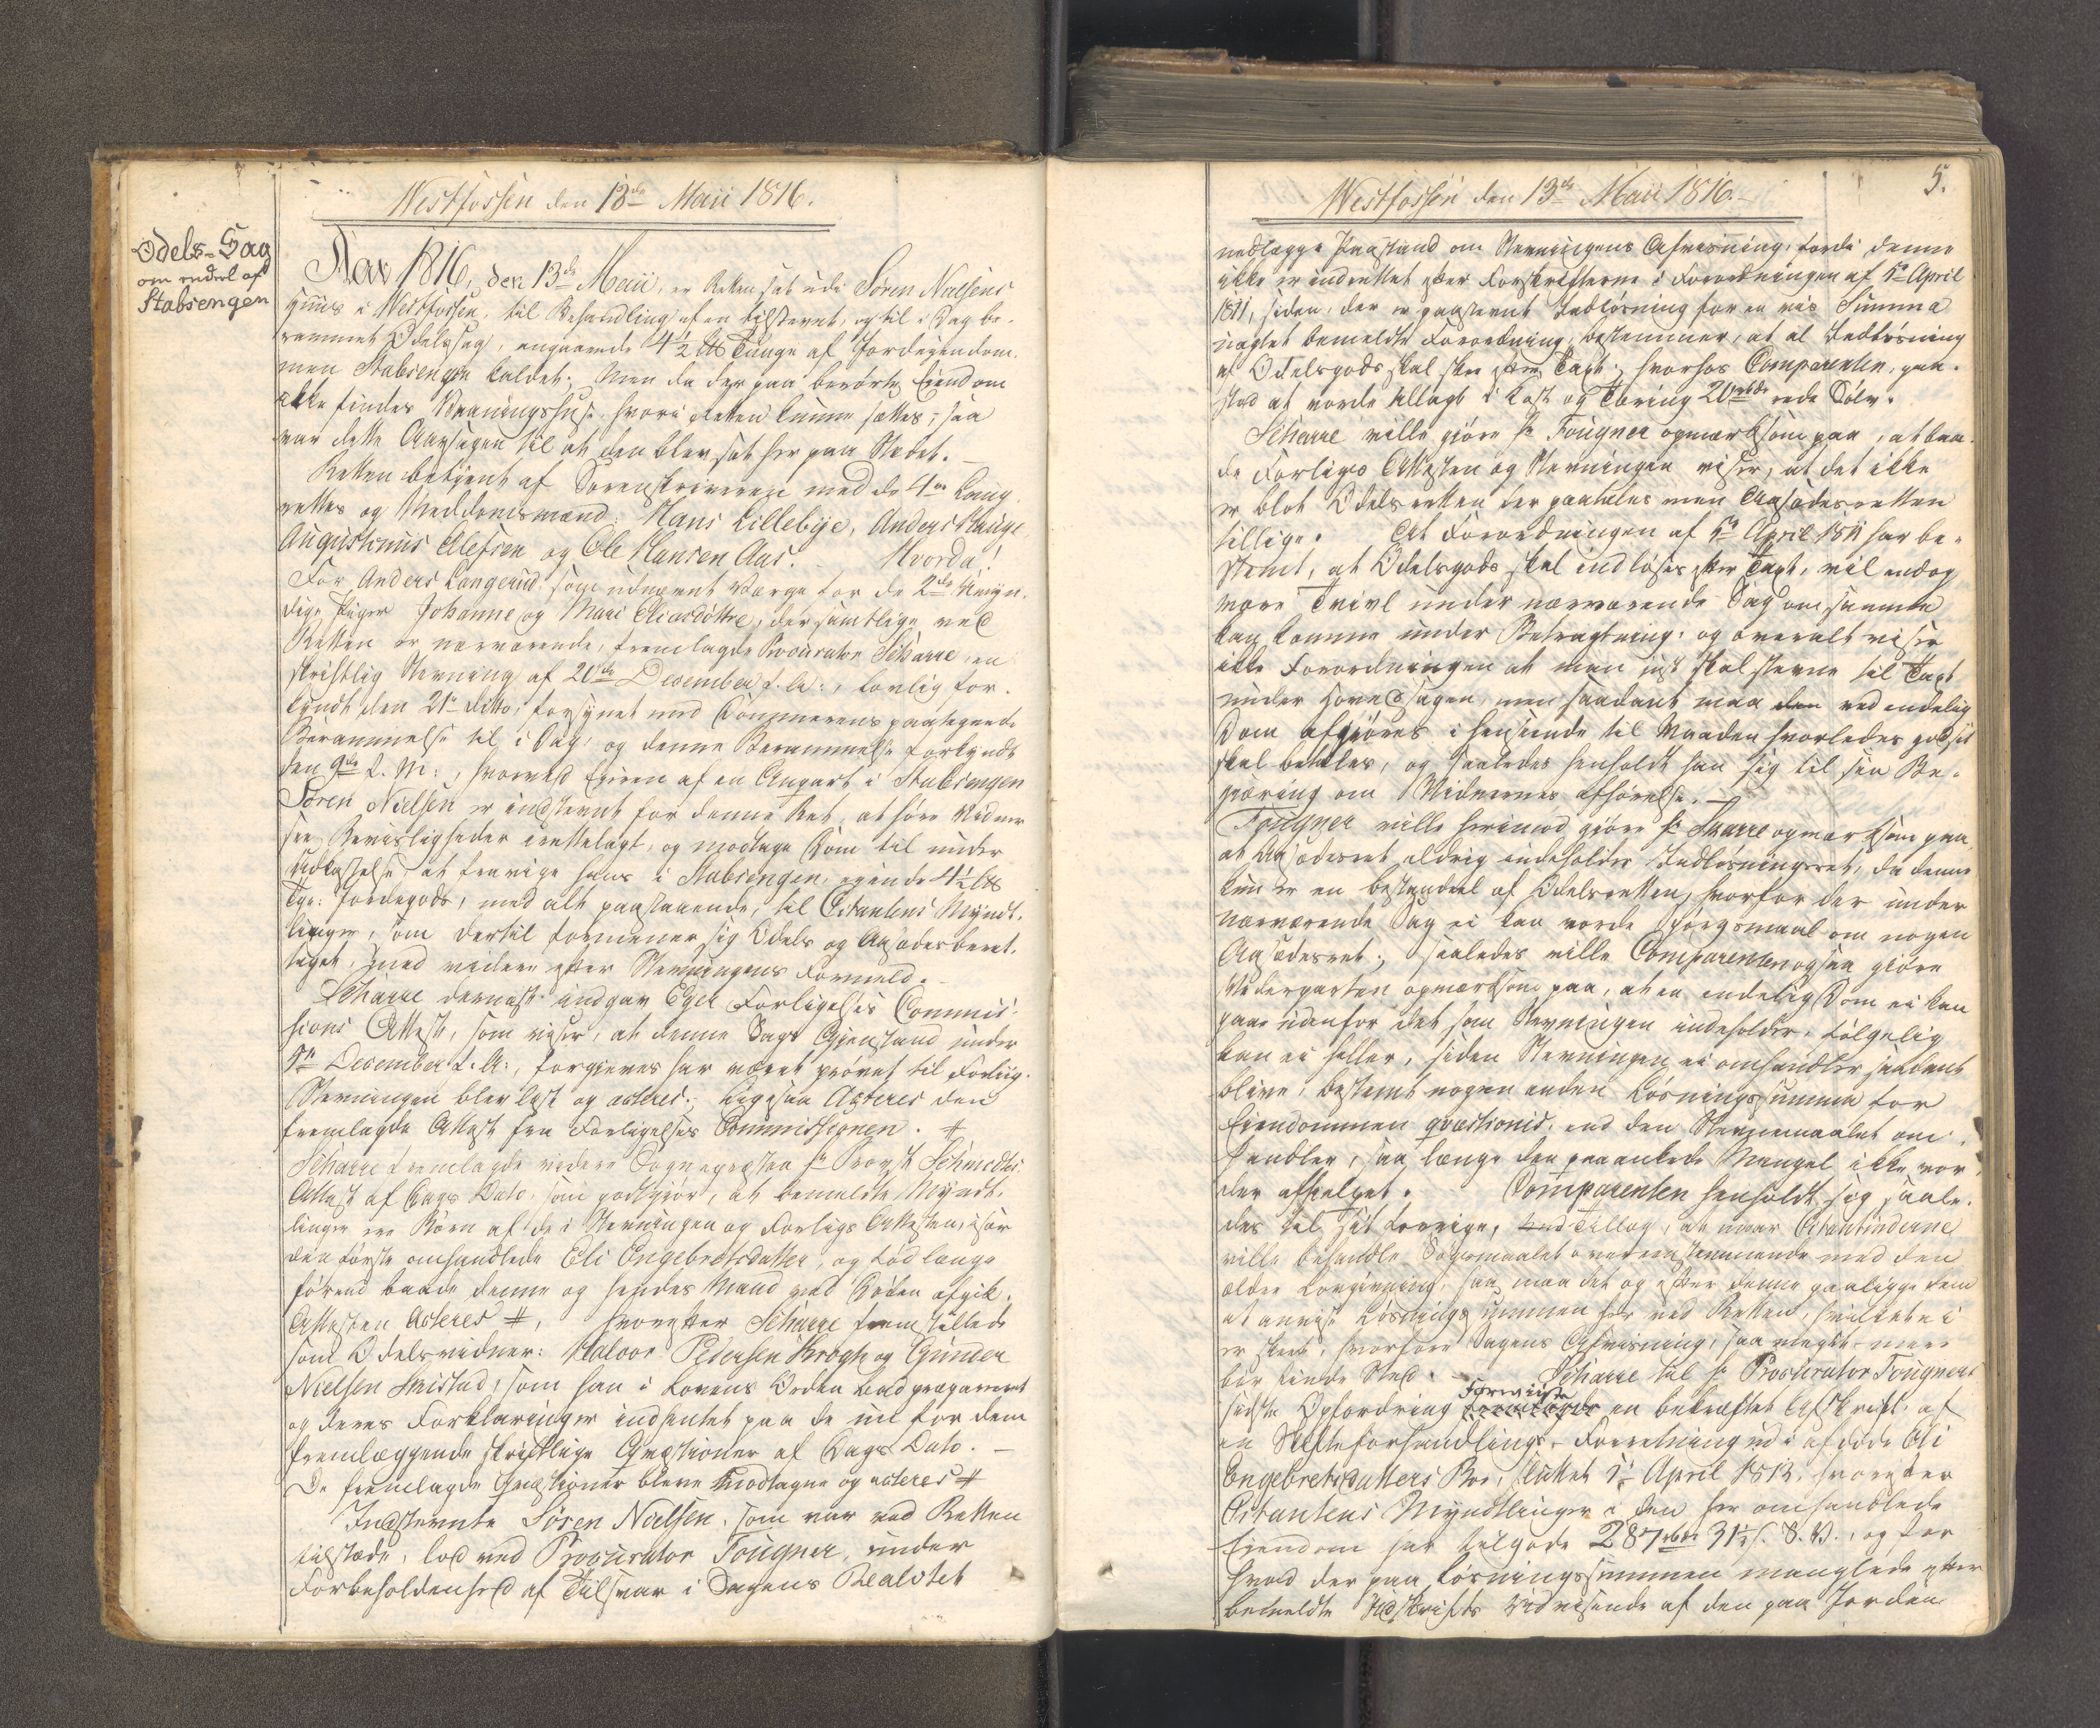 Westfossen den 13de Maii 1816.
Odels-Sag
om endeel af
Stabsengen
Aar 1816, den 13de Maii, er Retten sat udi Søren Nielsens
Huus i Westfossen, til Behandling af en tilstevnt, og til i Dag be-
rammet Odelssag, angaaende 4½ Lb Tunge af Jordeiendom-
men Stabsengen kaldet. Men da der paa berørte Eiendom
ikke findes Vaaningshuse, hvori Retten kunne sættes; saa
var dette Aarsagen til at den blev sat her paa Stedet.
Retten betjent af Sorenskriveren med de 4re Laug-
rettes og Meddomsmænd: Hans Lillebye, Anders Hauge
Augustinus Olefsen og Ole Hansen Aas. Hvorda!
For Anders Langerud som udnævnt Værge for de 2de Umyn-
dige Piger Johanne og Mari Eliasdøttre, der samtlige ved
Retten er nærværende, fremlagde Procurator Scharre, en
skriftlig Stevning af 20de December f. A:, lovlig for-
kyndt den 21de ditto, forsynet med Dommerens paategnede
Berammelse til i Dag, og denne Berammelse forkyndt
den 9de d. M:, hvorved Eieren af en Anpart i Stabsengen
Søren Nielsen er indstevnt for denne Ret, at høre Vidner
see Bevisligheder irettelagt, og modtage Dom til under
Udkastelse at fravige hans i Stabsengen eiende 4½ Lb
Tge: Jordegods, med alt paastaaende, til Citantens Myndt-
linger, som dertil formener sig Odels og Aasædesberet-
tiget, med videre efter Stevningens Formeld.
Scharre dernæst indgav Eger Forligelses Commis-
sions Attest, som viser, at denne Sags Gjenstand under
5te December f. A:, forgieves har været prøvet til Forliig.
Stevningen blev læst og acteres; ligesaa Acteres den
fremlagde Attest fra Forligelses Commissionen. #
Scharre fremlagde videre Sognepræsten Hr Provst Schmidts
Attest af Dags Dato, som godtgjør, at bemeldte Myndt-
linger ere Børn af de i Stevningen og Forligs Attesten, især
den første omhandlede Eli Engebretsdatter, og født længe
førend baade denne og hendes Mand ved Døden afgik.
Attesten Acteres #, hvorefter Scharre fremstillede
som Odelsvidner: Halvor Pedersen Krogh og Gunder
Nielsen Smistad, som han i Lovens Orden bad præpareret
og deres Forklaringer indhentet paa de nu for dem
fremlæggende skriftlige Qvæstioner af Dags Dato.
De fremlagde Qvæstioner bleve modtagne og acteres #
Indstevnte Søren Nielsen, som var ved Retten
tilstæde, lod ved Procurator Fougner, under
Forbeholdenhed af Tilsvar i Sagens Realitet
Westfossen den 13de Maii 1816.
5.
nedlægge Paastand om Stevningens Afviisning, fordi denne
ikke er indrettet efter Forskrifterne i Forordningen af 5te April
1811, siden der er paastevnt Indløsning for en vis Summa
uagtet bemeldte Forordning bestemmer, at al Indløsning
af Odelsgods skal skee efter Taxt; hvorhos Comparenten paa-
stod at vorde tillagt i Kost og Tæring 20 rbdr rede Sølv.
Scharre ville gjøre Hr Fougner opmærksom paa, at baa-
de Forligs Attesten og Stevningen viser, at det ikke
er blot Odelsretten der paatales men Aasædesretten
tillige. At Forordningen af 5te April 1811 har be-
stemt, at Odelsgods skal indløses efter Taxt, vil endog
være Tvivl under nærværende Sag om samme
kan komme under Betragtning, og overalt viser
ikke Forordningen at man just skal stevne til Taxt
under Hovedsagen, men saadant maa ved endelig
Dom afgjøres i Henseende til Maaden hvorledes Godset
skal betales, og saaledes henholdt han sig til sin Be-
gjæring om Vidnernes Afhørelse.
Fougner ville herimod gjøre Hr Skarre opmærksom paa
at Aasædesret aldrig indeholder Indløsningsret, da denne
kun er en bestanddeel af Odelsretten, hvorfor der under
nærværende Sag ei kan vorde Spørgsmaal om nogen
Aasædesret; saaledes ville Comparenten ogsaa gjøre
Vederparten opmærksom paa, at en endelig Dom ei kan
gaae udenfor det som Stevningen indeholder, følgelig
kan ei heller, siden Stevningen ei omhandler saadant
blive bestemt nogen anden Løsningssumma for
Eiendommen qvæstionis, end den Stevnemaalet om-
handler, saa længe den paaankede Mangel ikke vor-
der afhjelpet. Comparenten henholdt sig saale-
des til sit Forrige, med Tillæg, at naar Citantinderne
ville behandle Søgsmaalet overeensstemmende med den
ældre Lovgivning, saa maa det og efter denne paaligge dem
at anvise Løsningssummen her ved Retten, hvilket ei
er skeet, hvorfore Sagens Afviisning, saa meget mere
bør finde Sted. Scharre til Hr Procurator Fougners
sidste Opfordring Forviiste en bekræftet Afskrift af
en Skifteforhandlings-Forretning udi afdøde Eli
Engebretsdatters Boe, sluttet 5te April 1813, hvorefter
Citantens Myndtlinger i den her omhandlede
Eiendom har tilgode 287 rbdr 31½ s. S.V., og for
hvad der paa Løsningssummen manglede efter
bemeldte Udskrifts Udvisende af den paa Jorden